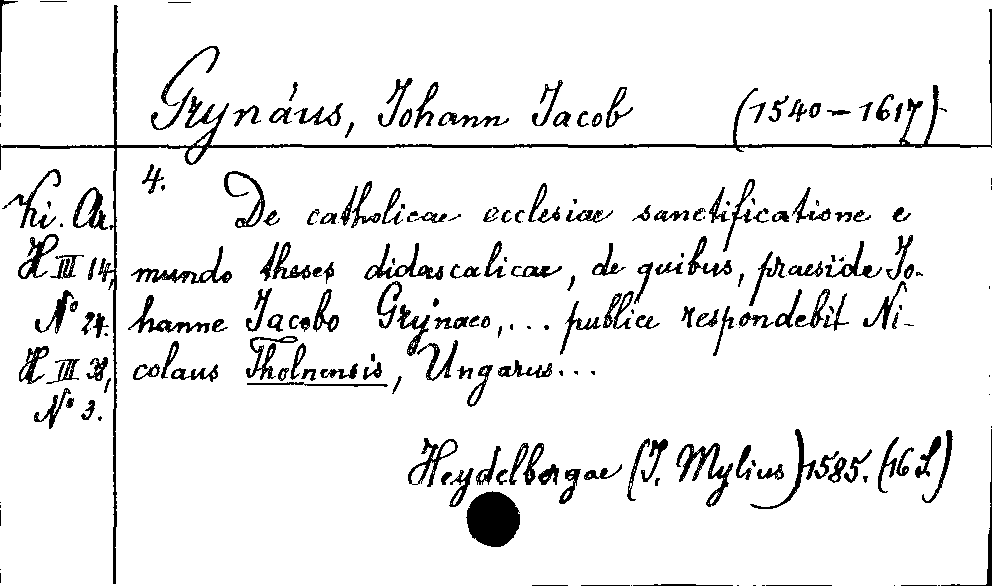 Grynäus, Johann Jacob (1540-1617)
4.
Ki. Ar.
H III 14,
No 24.
H III 38,
No 3.
De catholicae ecclesiae sanctificatione e
mundo theses didascalicae, de quibus, praeside Jo-
hanne Jacobo Grynaeo,... publice respondebit Ni-
colaus Tholnensis, Ungarus...
Heydelbergae (J. Mylius) 1585. (16 S.)